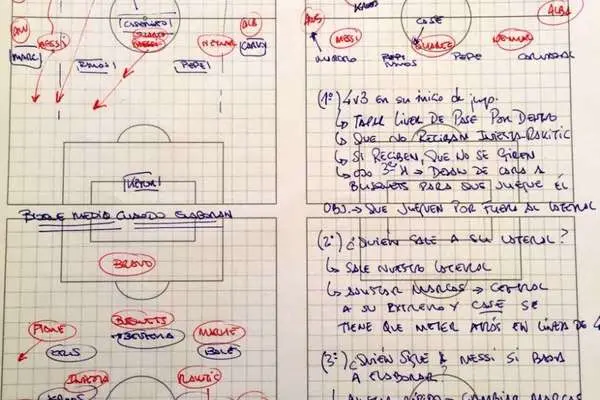 CASEMIRO
SUAREZ
MESSI
NEYMAR
ALBA
MARC
CARVY
RAMOS
PEPE
VICTOR
BLOQUE MEDIO CUANDO ELABORAN
BRAVO
PIQUE
BUSQUETS
MATHIE
CRIS
BENZEMA
BALE
INIESTA
RAKITIC
KROOS
KROOS
ALBA
CASE
MESSI
SUAREZ
NEYMAR
RAMOS
PEPE
CARVAJAL
(1º) 4v3 EN SU INICIO DE JUEGO.
↳ TAPAR LÍNEA DE PASE POR DENTRO
↳ QUE NO RECIBAN INIESTA-RAKITIC
↳ SI RECIBEN, QUE NO SE GIREN
↳ OJO 3er H → DEJAN DE CARA A
BUSQUETS PARA QUE JUEGUE ÉL
OBJ. → QUE JUEGUEN POR FUERA AL LATERAL
(2º) ¿QUIÉN SALE A SU LATERAL?
↳ SALE NUESTRO LATERAL
↳ AJUSTAR MARCAS → CENTRAL
A SU EXTREMO Y CASE SE
TIENE QUE METER ATRÁS EN LÍNEA DE 4
(3º) ¿QUIÉN SIGUE A MESSI SI BAJA
A ELABORAR?
CAMBIAR MARCAS